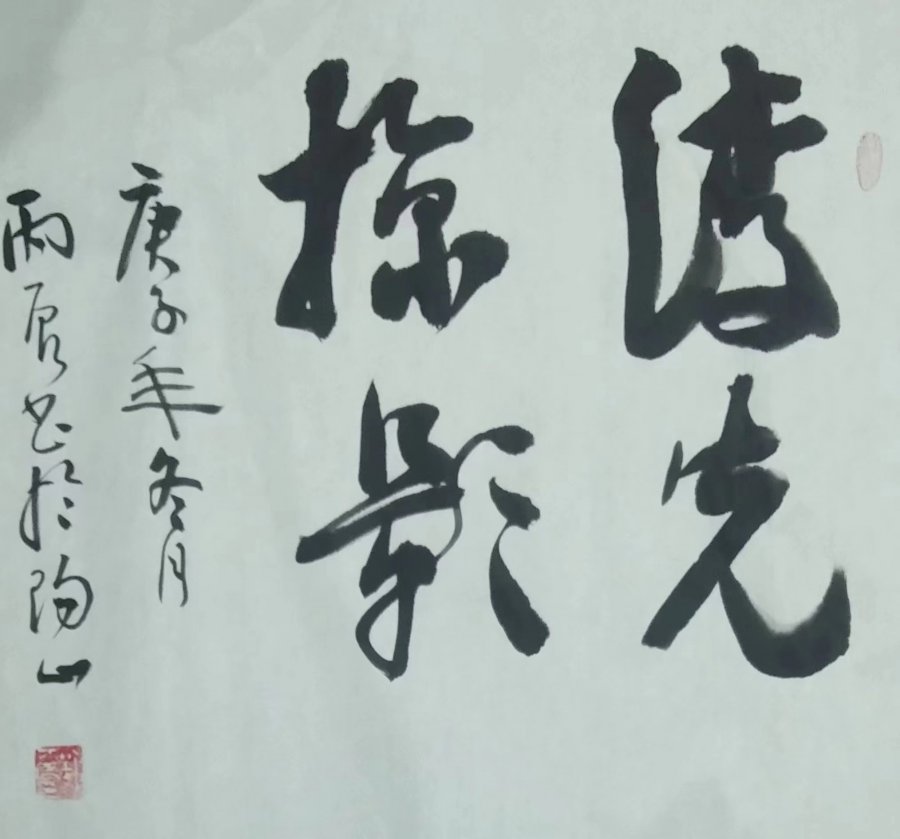 浮光
掠影
庚子年冬月
雨辰书於陶山